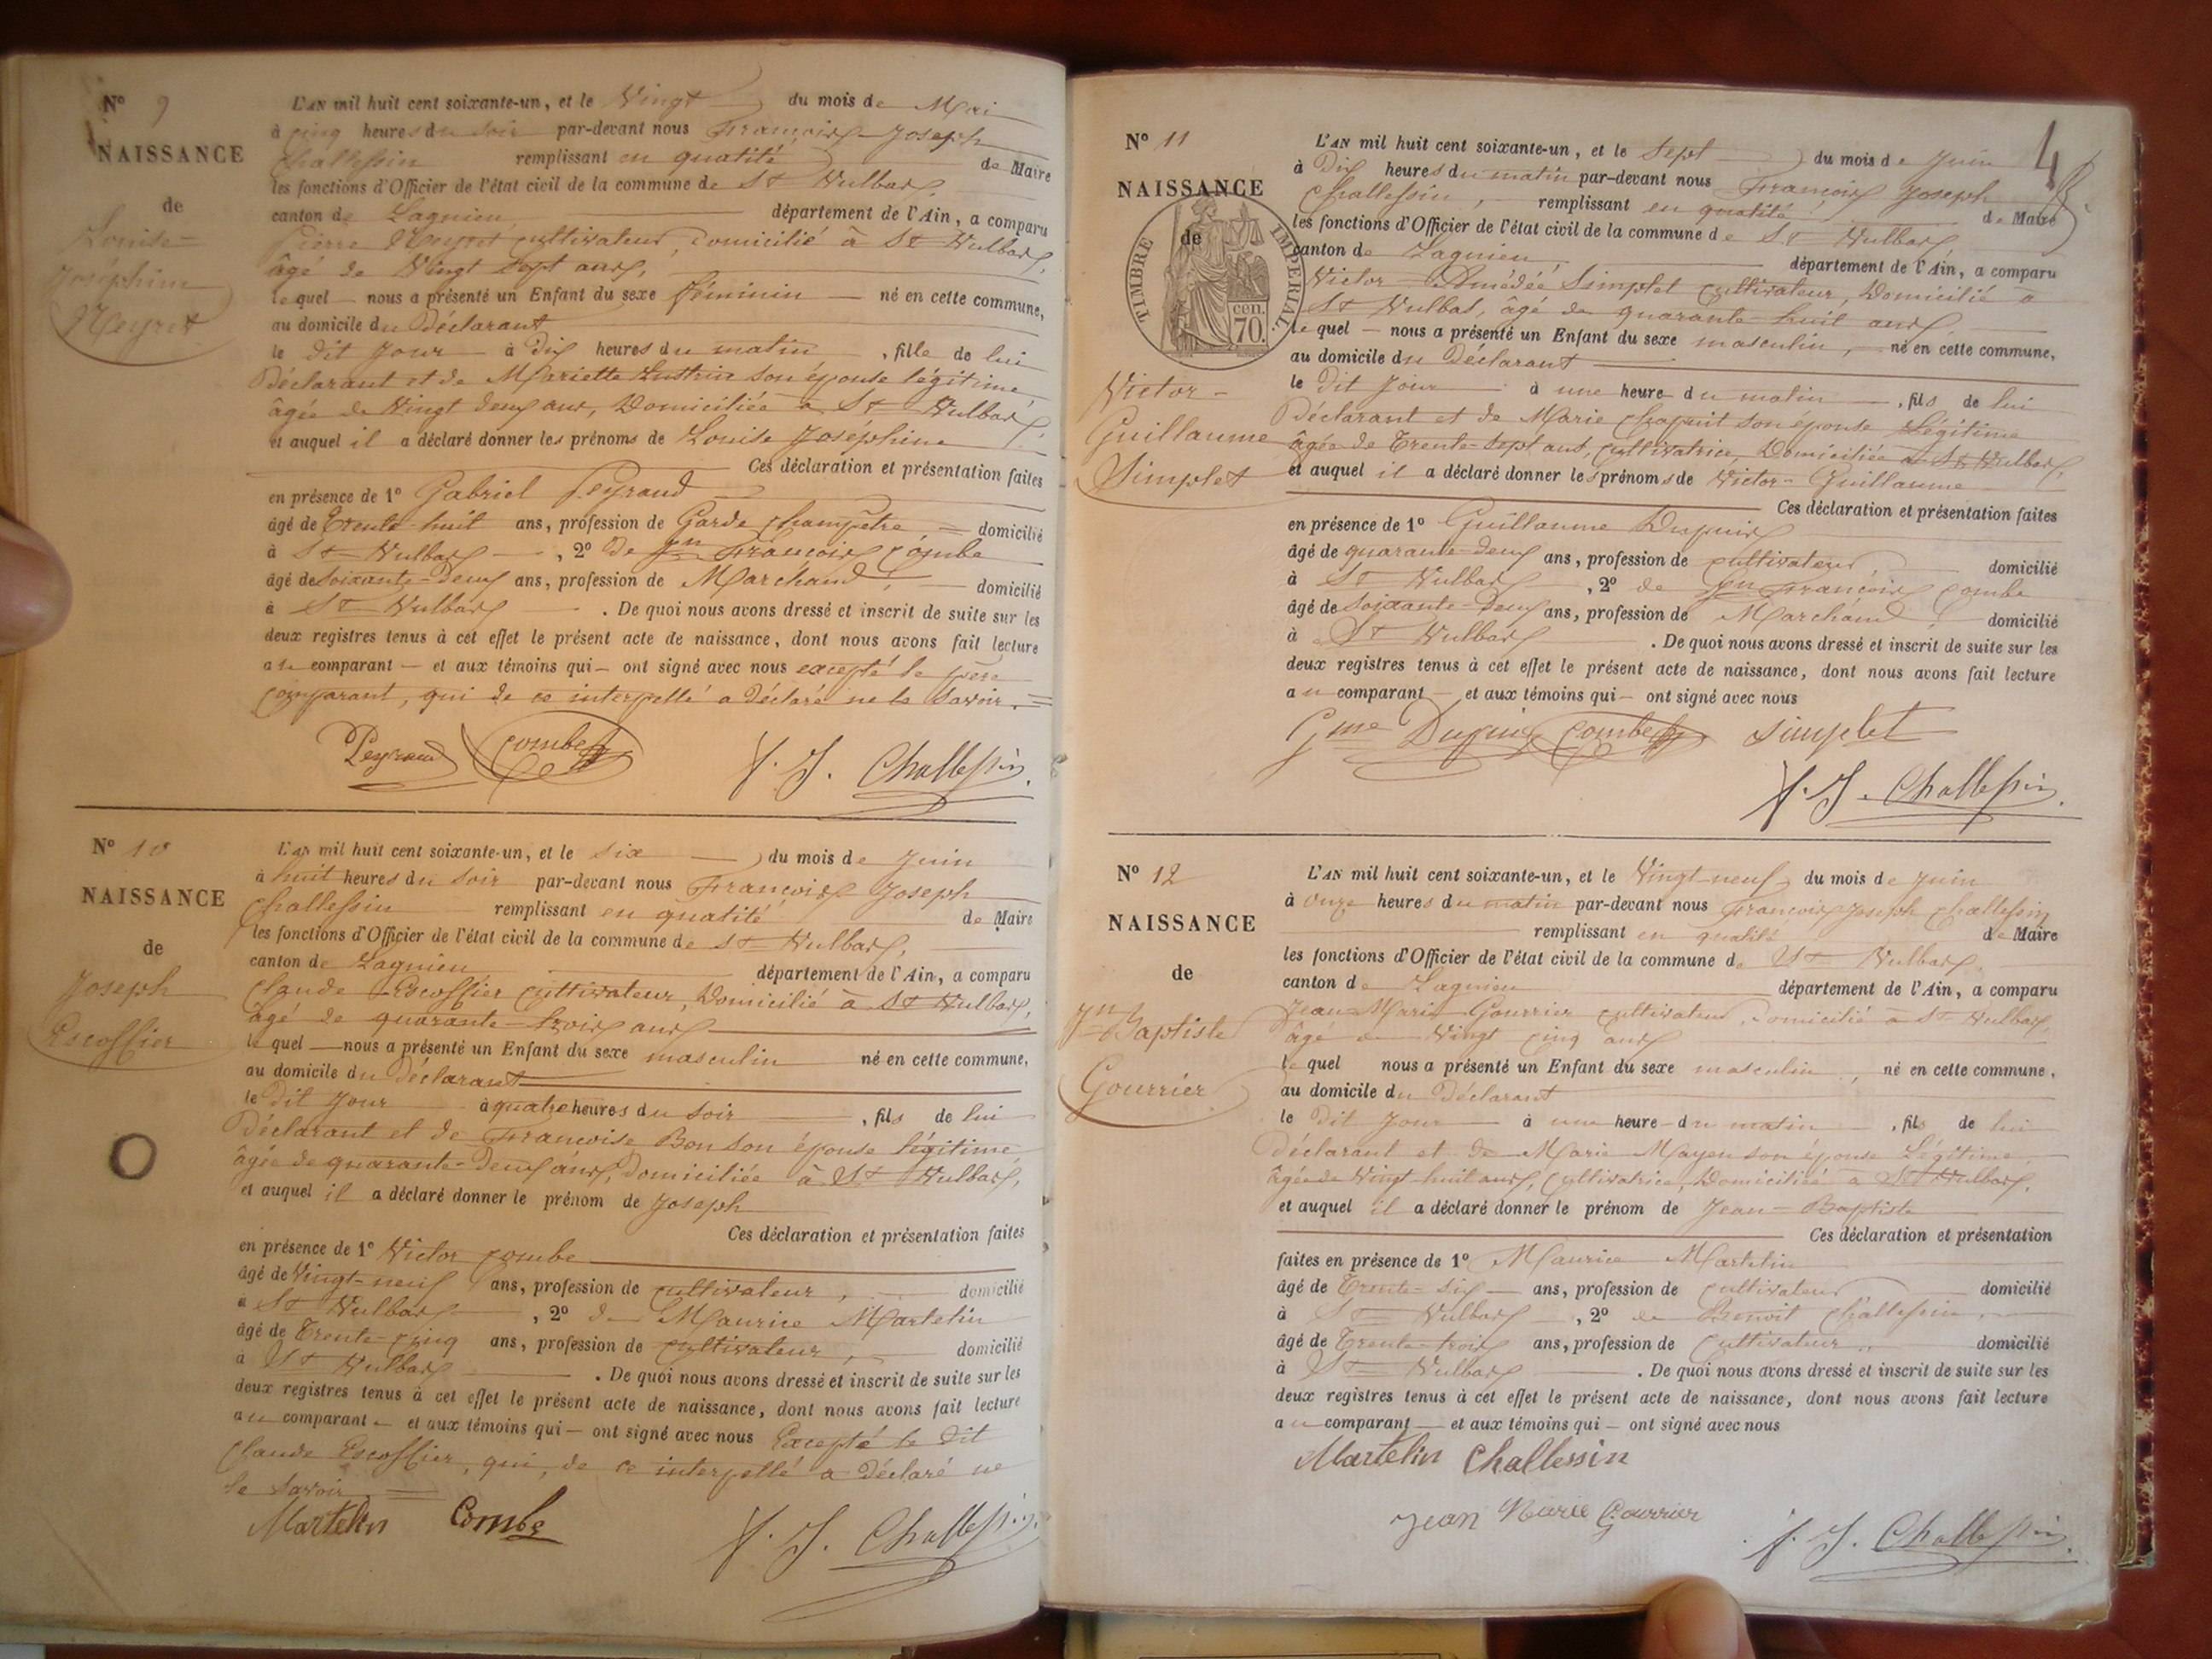 Nº 9
NAISSANCE
de
Louise-
Joséphine
Neyret
L'AN mil huit cent soixante-un, et le Vingt du mois de Mai
à cinq heures du soir par-devant nous François Joseph
Challessin remplissant en qualité de Maire
les fonctions d'Officier de l'état civil de la commune de St Vulbas,
canton de Lagnieu département de l'Ain, a comparu
Pierre Neyret cultivateur, Domicilié à St Vulbas,
âgé de Vingt sept ans,
lequel nous a présenté un Enfant du sexe féminin né en cette commune,
au domicile du Déclarant
le dit jour à Dix heures du matin, fille de lui
Déclarant et de Mariette son épouse légitime,
âgée de Vingt deux ans, Domiciliée à St Vulbas,
et auquel il a déclaré donner les prénoms de Louise Joséphine
Ces déclaration et présentation faites
en présence de 1º Gabriel Peyraud
âgé de Trente-huit ans, profession de Garde champêtre, domicilié
à St Vulbas, 2º De Jn François Combe
âgé de Soixante-Deux ans, profession de Marchand, domicilié
à St Vulbas. De quoi nous avons dressé et inscrit de suite sur les
deux registres tenus à cet effet le présent acte de naissance, dont nous avons fait lecture
au comparant et aux témoins qui ont signé avec nous excepté le père
comparant, qui de ce interpellé a déclaré ne le savoir. =
Peyraud Combe F. J. Challessin
Nº 10
NAISSANCE
de
Joseph
Escoffier
L'AN mil huit cent soixante-un, et le six du mois de Juin
à huit heures du soir par-devant nous François Joseph
Challessin remplissant en qualité de Maire
les fonctions d'Officier de l'état civil de la commune de St Vulbas,
canton de Lagnieu département de l'Ain, a comparu
Claude Escoffier cultivateur, Domicilié à St Vulbas,
âgé de quarante-trois ans
lequel nous a présenté un Enfant du sexe masculin né en cette commune,
au domicile du Déclarant
le dit jour à quatre heures du soir, fils de lui
Déclarant et de Françoise Bon son épouse légitime
âgée de quarante-Deux ans, Domiciliée à St Vulbas,
et auquel il a déclaré donner le prénom de Joseph
Ces déclaration et présentation faites
en présence de 1º Victor Combe
âgé de Vingt-neuf ans, profession de cultivateur, domicilié
à St Vulbas, 2º de Maurice Martelin
âgé de Trente-cinq ans, profession de cultivateur, domicilié
à St Vulbas. De quoi nous avons dressé et inscrit de suite sur les
deux registres tenus à cet effet le présent acte de naissance, dont nous avons fait lecture
au comparant et aux témoins qui ont signé avec nous Excepté le dit
Claude Escoffier, qui, de ce interpellé a déclaré ne
le savoir =
Martelin Combe F. J. Challessin
4
Nº 11
NAISSANCE
de
TIMBRE IMPERIAL
70. cen.
Victor-
Guillaume
Simplet
L'AN mil huit cent soixante-un, et le Sept du mois de Juin
à Dix heures du matin par-devant nous François Joseph
Challessin, remplissant en qualité de Maire
les fonctions d'Officier de l'état civil de la commune de St Vulbas,
canton de Lagnieu département de l'Ain, a comparu
Victor Amédée Simplet cultivateur, Domicilié à
St Vulbas, âgé de quarante-huit ans,
lequel nous a présenté un Enfant du sexe masculin, né en cette commune,
au domicile du Déclarant
le dit jour à une heure du matin, fils de lui
Déclarant et de Marie Chapuit son épouse Légitime
âgée de Trente-sept ans, cultivatrice, Domiciliée à St Vulbas,
et auquel il a déclaré donner les prénoms de Victor-Guillaume
Ces déclaration et présentation faites
en présence de 1º Guillaume Dupuis
âgé de quarante-deux ans, profession de cultivateur, domicilié
à St Vulbas, 2º de Jn François Combe
âgé de Soixante-Deux ans, profession de Marchand, domicilié
à St Vulbas. De quoi nous avons dressé et inscrit de suite sur les
deux registres tenus à cet effet le présent acte de naissance, dont nous avons fait lecture
au comparant et aux témoins qui ont signé avec nous
Gme Dupuis Combe Simplet
F. J. Challessin
Nº 12
NAISSANCE
de
Jn Baptiste
Gourrier
L'AN mil huit cent soixante-un, et le Vingt-neuf du mois de Juin
à Onze heures du matin par-devant nous François Joseph Challessin
remplissant en qualité de Maire
les fonctions d'Officier de l'état civil de la commune de St Vulbas,
canton de Lagnieu département de l'Ain, a comparu
Jean Marie Gourrier cultivateur, Domicilié à St Vulbas,
âgé de Vingt cinq ans
lequel nous a présenté un Enfant du sexe masculin, né en cette commune,
au domicile du Déclarant
le dit jour à une heure du matin, fils de lui
Déclarant et de Marie Mayen son épouse Légitime,
âgée de Vingt huit ans, cultivatrice, Domiciliée à St Vulbas,
et auquel il a déclaré donner le prénom de Jean-Baptiste
Ces déclaration et présentation
faites en présence de 1º Maurice Martelin
âgé de Trente-six ans, profession de cultivateur domicilié
à St Vulbas, 2º de Benoit Challessin,
âgé de Trente-trois ans, profession de cultivateur domicilié
à St Vulbas. De quoi nous avons dressé et inscrit de suite sur les
deux registres tenus à cet effet le présent acte de naissance, dont nous avons fait lecture
au comparant et aux témoins qui ont signé avec nous
Martelin Challessin
Jean Marie Gourrier F. J. Challessin